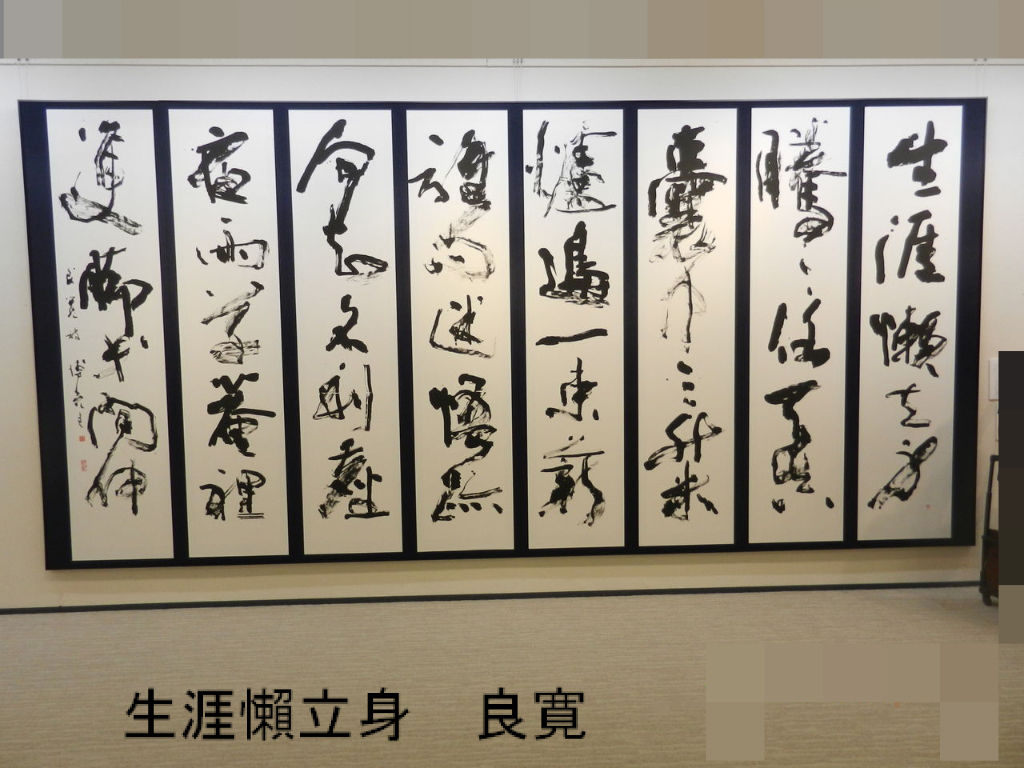 生涯懶立身
騰々任天真
囊中三升米
爐邊一束薪
誰問迷悟跡
何知名利塵
夜雨草菴裡
雙脚等間伸
生涯懶立身　良寛